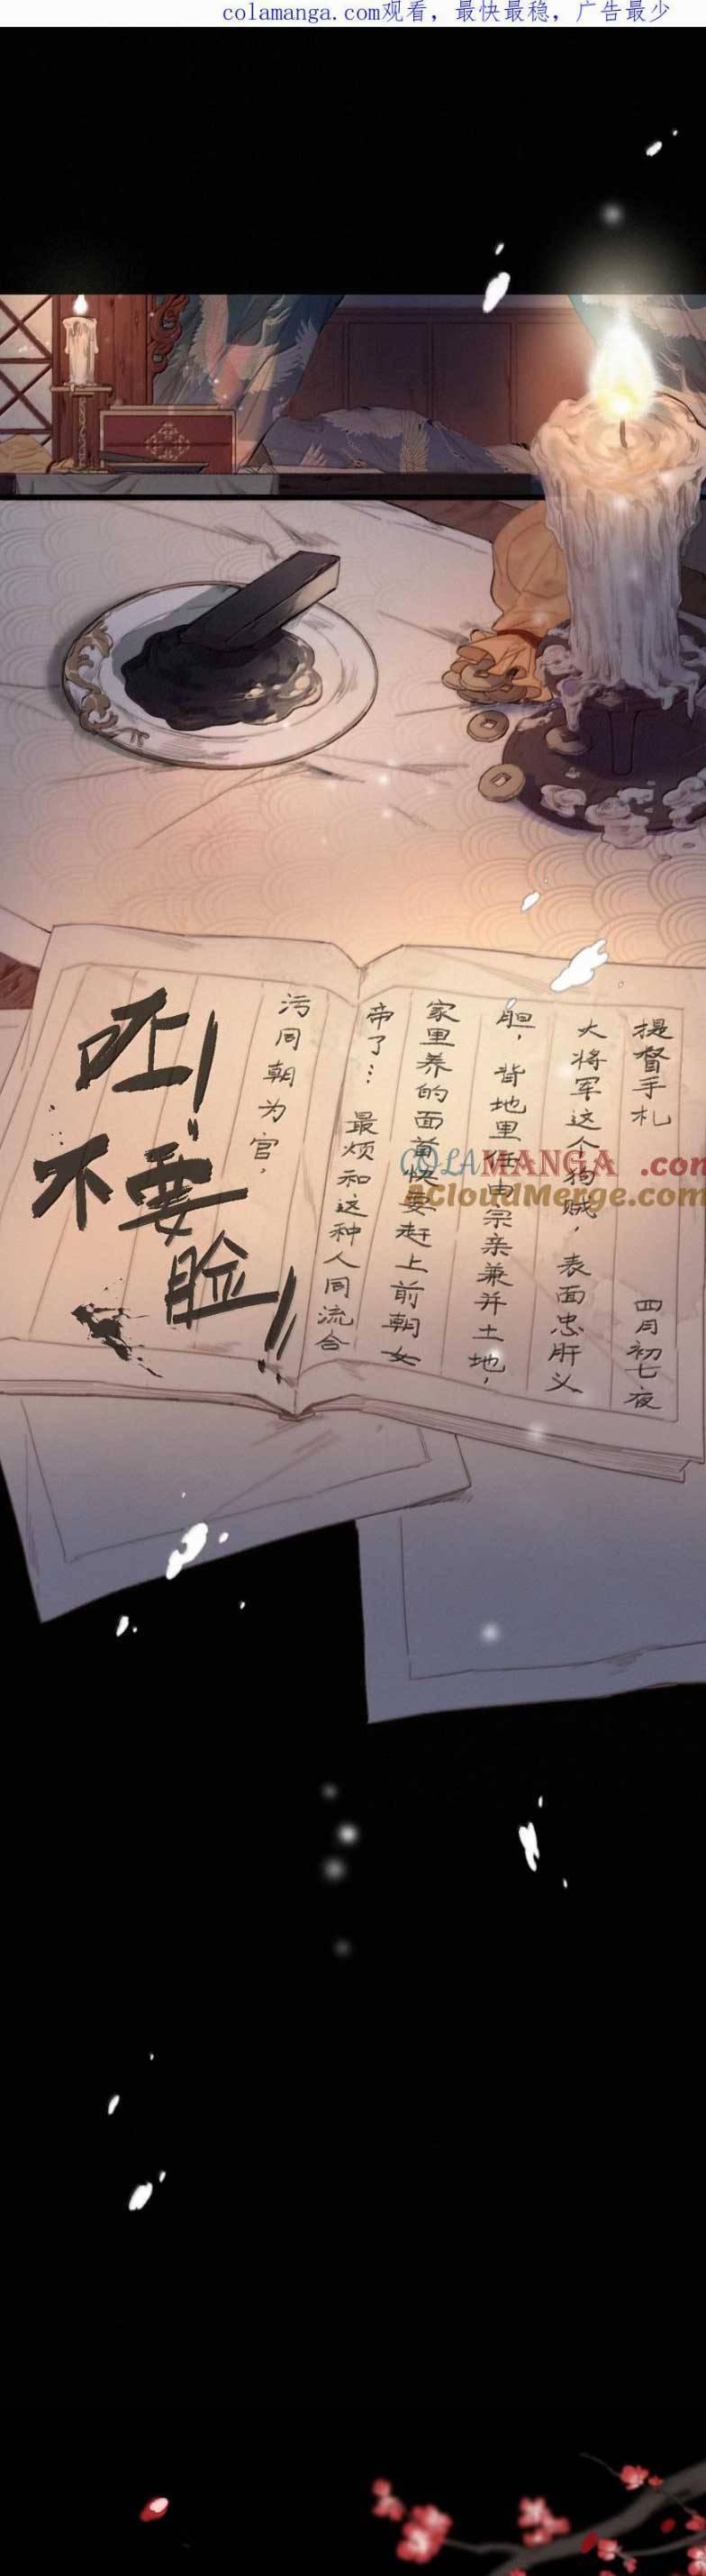 colamanga.com观看，最快最稳，广告最少
提督手札 四月初七夜
大将军这个狗贼，表面忠肝义
胆，背地里任由宗亲兼并土地，
家里养的面首快要赶上前朝女
帝了… 最烦和这种人同流合
污同朝为官，
呸！
不要
脸！！
COLAMANGA.com
ACloudMerge.com